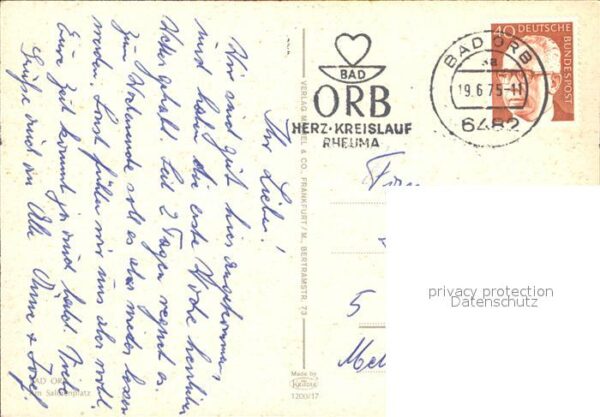 Ihr Lieben!
Wir sind gut hier angekommen,
und haben die erste Woche herrliches
Wetter gehabt. Seit 2 Tagen regnet es.
Zum Wochenende soll es aber wieder besser
werden. Sonst fühlen wir uns aber wohl.
Eure Zeit kommt ja auch bald. Viele
Grüße an Alle
BAD ORB
Am Salinenplatz
VERLAG MENGEL & CO., FRANKFURT/M., BERTRAMSTR. 73
Made by
KRÜGER
1200/17
BAD
ORB
HERZ·KREISLAUF
RHEUMA
BAD ORB
aa
19.6.75-11
6482
40 DEUTSCHE
BUNDESPOST
Fam
5
privacy protection
Datenschutz